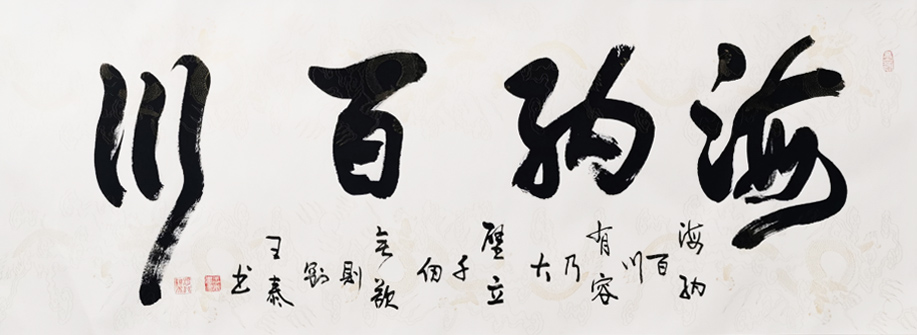 海纳百川
海纳
百川
有容
乃
大
壁立
千
仞
无欲
则
刚
王泰
书